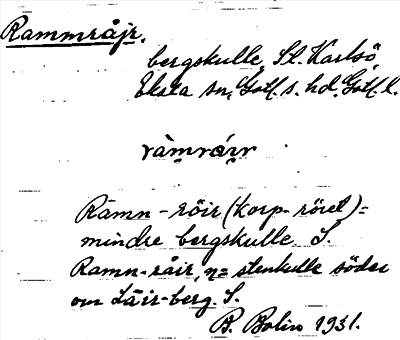 Rammråjr.
bergskulle, St. Karlsö,
Eksta sn, Gotl. s. hd, Gotl. l.
ràmråır
Ramn-röir (Korp-röret) =
mindre bergskulle. S.
Ramn-råir, n = stenkulle söder
om Läis-berg. S.
B. Bolin 1931.